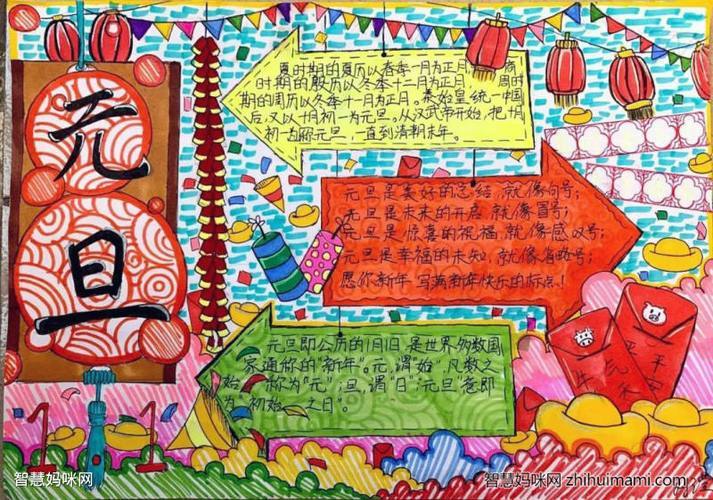 元旦
夏时期的夏历以春季一月为正月
时期的殷历以冬季十二月为正月 周时
期的周历以冬季十一月为正月。秦始皇统一中国
后,又以十月初一为元旦。从汉武帝开始,把1月
初一为称元旦,一直到清朝末年。
元旦是美好的总结,就像句号;
元旦是未来的开启,就像冒号;
元旦是惊喜的祝福,就像感叹号;
元旦是幸福的未知,就像省略号;
愿你新年写满新年快乐的标点!
元旦即公历的1月1日,是世界多数国
家通称的“新年”。元,谓“始”,凡数之
始 称为“元”;旦,谓“日”;“元旦”意即
为“初始 之日”。
1 1
平安
智慧妈咪网
智慧妈咪网 zhihuimami.com